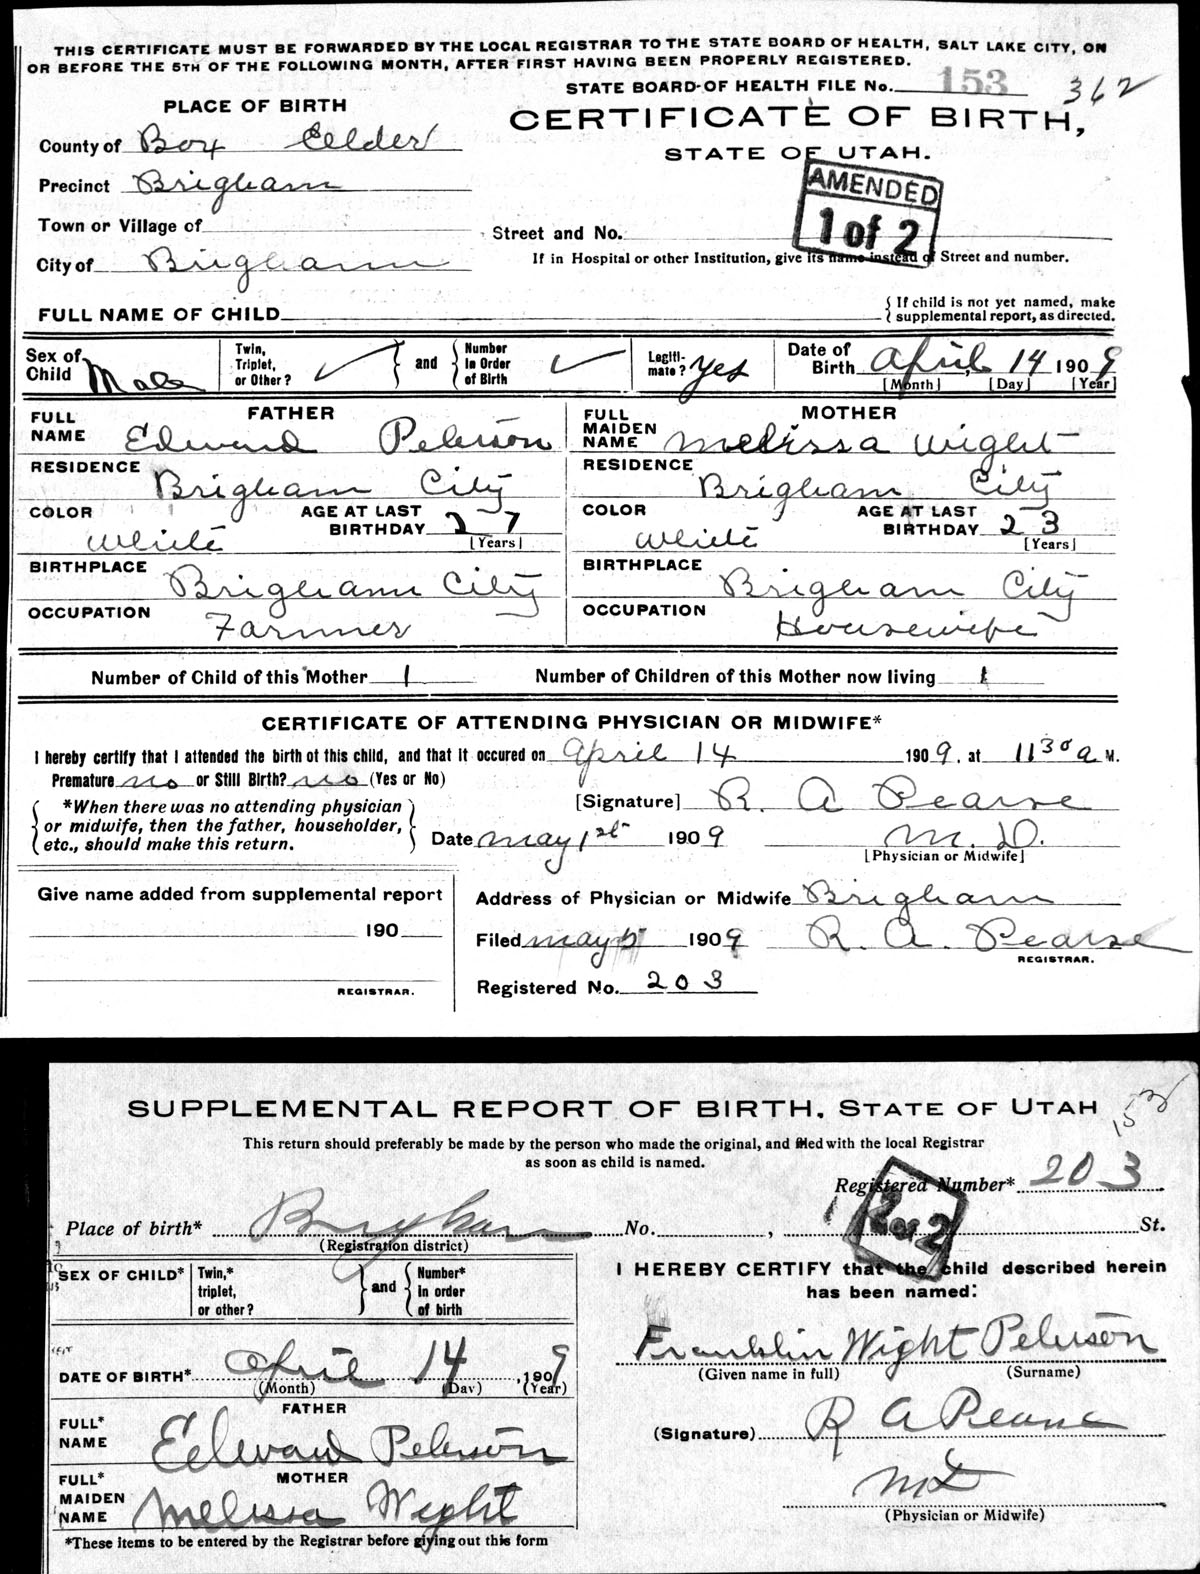 THIS CERTIFICATE MUST BE FORWARDED BY THE LOCAL REGISTRAR TO THE STATE BOARD OF HEALTH, SALT LAKE CITY, ON
OR BEFORE THE 5TH OF THE FOLLOWING MONTH, AFTER FIRST HAVING BEEN PROPERLY REGISTERED.
STATE BOARD OF HEALTH FILE No. 153 362
PLACE OF BIRTH
CERTIFICATE OF BIRTH,
County of Box Elder
STATE OF UTAH.
Precinct Brigham
AMENDED
1 of 2
Town or Village of
Street and No.
City of Brigham
If in Hospital or other Institution, give its name instead of Street and number.
FULL NAME OF CHILD
{ If child is not yet named, make
supplemental report, as directed.
Sex of Child Male
Twin, Triplet, or Other? ✓ and Number In Order of Birth ✓
Legitimate? yes
Date of Birth April 14 1909
[Month] [Day] [Year]
FATHER
FULL NAME Edward Peterson
MOTHER
FULL MAIDEN NAME Melissa Wight
RESIDENCE Brigham City
RESIDENCE Brigham City
COLOR White
AGE AT LAST BIRTHDAY 27 [Years]
COLOR White
AGE AT LAST BIRTHDAY 23 [Years]
BIRTHPLACE Brigham City
BIRTHPLACE Brigham City
OCCUPATION Farmer
OCCUPATION Housewife
Number of Child of this Mother 1
Number of Children of this Mother now living 1
CERTIFICATE OF ATTENDING PHYSICIAN OR MIDWIFE*
I hereby certify that I attended the birth of this child, and that it occured on April 14 1909. at 11 30 a M.
Premature no or Still Birth? no (Yes or No)
*When there was no attending physician
or midwife, then the father, householder,
etc., should make this return.
[Signature] R. A Pearse
Date May 1st 1909 M. D.
[Physician or Midwife]
Give name added from supplemental report
190
REGISTRAR.
Address of Physician or Midwife Brigham
Filed May 5 1909 R. A. Pearse
REGISTRAR.
Registered No. 203
SUPPLEMENTAL REPORT OF BIRTH, STATE OF UTAH 153
This return should preferably be made by the person who made the original, and filed with the local Registrar
as soon as child is named.
Registered Number* 203
2 of 2
Place of birth* Brigham No. , St.
(Registration district)
SEX OF CHILD*
Twin,* triplet, or other? and Number* in order of birth
I HEREBY CERTIFY that the child described herein
has been named:
Franklin Wight Peterson
(Given name in full) (Surname)
DATE OF BIRTH* April 14 , 1909
(Month) (Day) (Year)
FATHER
FULL* NAME Edward Peterson
(Signature) R A Pearse
MOTHER
FULL* MAIDEN NAME Melissa Wight
MD
(Physician or Midwife)
*These items to be entered by the Registrar before giving out this form